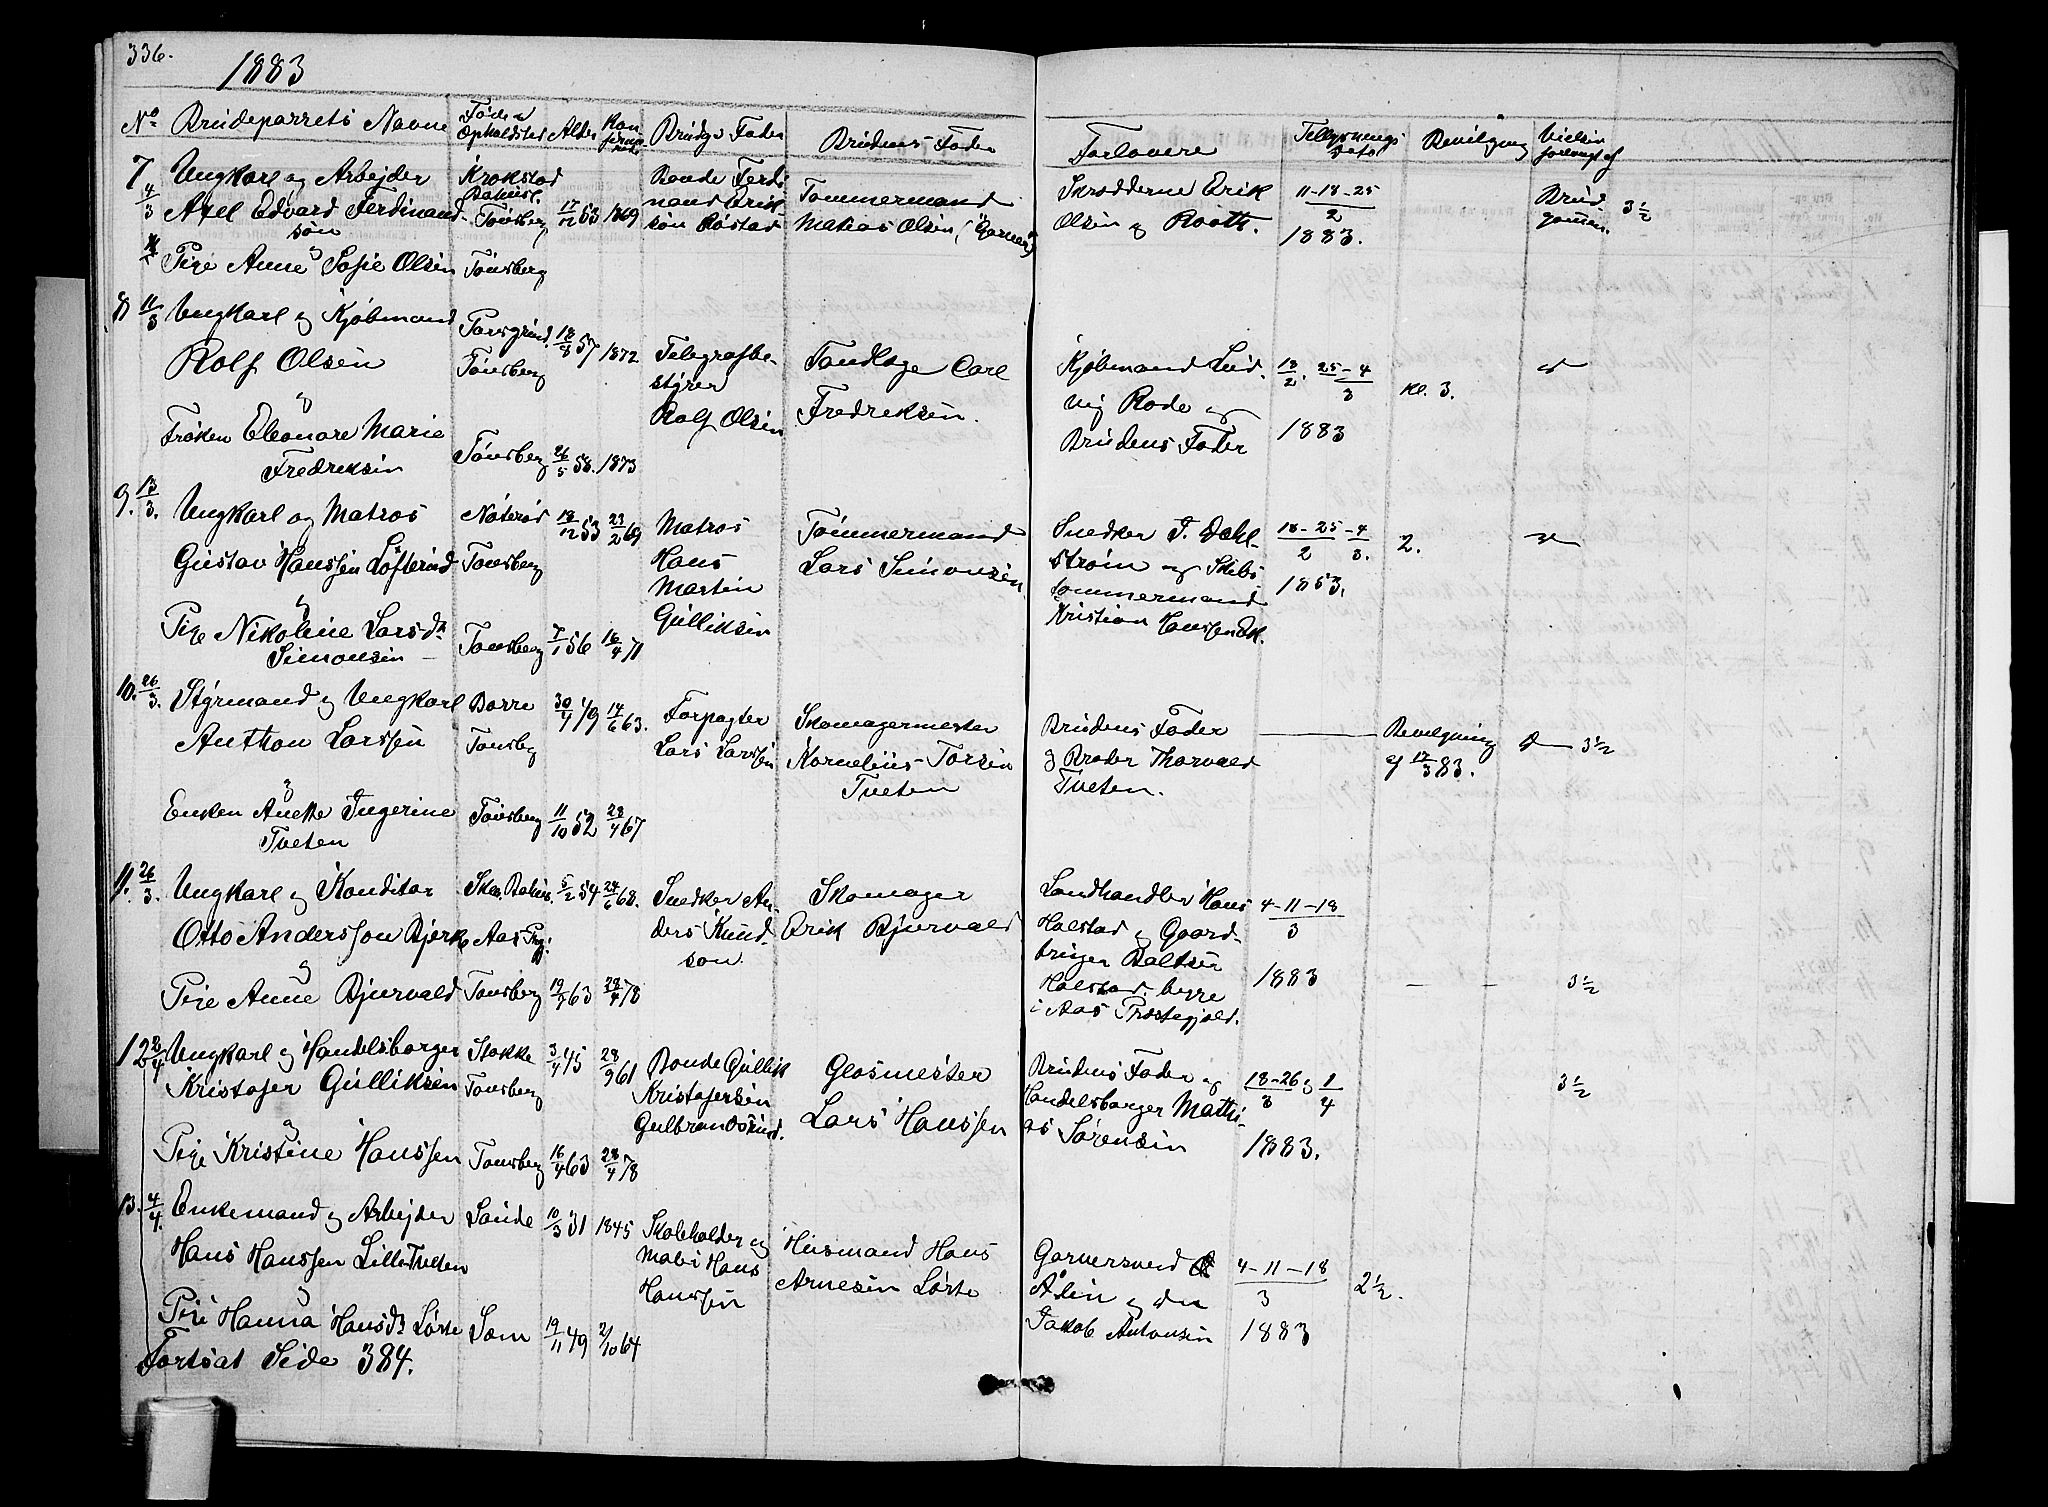 336.
1883
No Brudeparrets Navne Føde & Opholdsted Alder Konfirmerede Brudgs Fader Brudens Fader Forlovere Tillysnings Dato Bevilgning Vielsen forlangt af
7 4/3 Ungkarl og Arbejder Axel Edvard Ferdinandsøn Krokstad Bahusl. Tønsberg 17/12 53 1869 Bonde Ferdinand Erikson Røstad Tømmermand Matias Olsen, (Garner) Skrædderne Erik Olsen og Rooth. 11-18-25/2 1883. Brudgommen. 3½
&
Pige Anne Sofie Olsen Tønsberg
8 11/3 Ungkarl og Kjøbmand Rolf Olsen Porsgrund. Tønsberg 18/8 57 1872 Telegrafbestyrer Rolf Olsen Tandlæge Carl Fredriksen. Kjøbmand Ludvig Rode og Brudens Fader 18/2. 25-4/3 1883 kl. 3.
&
Frøken Eleonore Marie Fredriksen Tønsberg 26/5 58. 1873
9. 13/3. Ungkarl og Matros Gustav Hanssen Løfterød Nøterø Tønsberg 18/12 53 23/2 69 Matros Hans Martin Gulliksen Tømmermand Lars Simonsen. Snedker J. Dahlstrøm og Skibstømmermand Kristian Hanssen Ek. 18-25-4/2 3. 1853. 2.
&
Pige Nikoline Larsdr Simonsen Tønsberg 7/1 56 16/4 71
10. 26/3. Styrmand og Ungkarl Anthon Larssen Borre Tønsbg 30/4 49 14/6 63. Forpagter Lars Larssen Skomagermester Kornelius Torsen Tveten Brudens Fader og Broder Thorvald Tveten. Bevilgning af 17/3 83. 3½
&
Enken Anette Ingerine Tveten Tønsberg 11/10 52 28/4 67
11. 26/3. Ungkarl og Konditor Otto Andersson Bjerke Skee, Bahus. Aas Prgj: 5/2 54 24/6 68. Snedker Anders Knudson. Skomager Erik Bjurvald Landhandler Hans Holstad og Gaardbruger Baltser Holstad begge i Aas Præstegjæld. 4-11-18/3 1883 - - 3½
&
Pige Anne Bjurvald Tønsberg 19/7 63 28/4 78
12 2/4 Ungkarl og Handelsborger Kristofer Gulliksen Stokke Tønsberg 3/4 45 28/9 61 Bonde Gullik Kristofersen Gulbrandsrød. Glasmester Lars Hanssen Brudens Fader og Handelsborger Mathias Sørensen 18-26/3 & 1/4 1883. 3½
&
Pige Kristine Hanssen Tønsberg 16/4 63 28/4 78
13. 4/4. Enkemand og Arbejder Hans Hanssen Lille Tvedten Sande 10/3 31 1845 Skoleholder og Maler Hans Hanssen Husmand Hans Arnesen Lørte Garversvend Ådin og do Jakob Antonsen 4-11-18/3 1883 2½.
&
Pige Hanna Hansdr Lørte Sem 19/11 49 2/10 64
Fortsat Side 384.